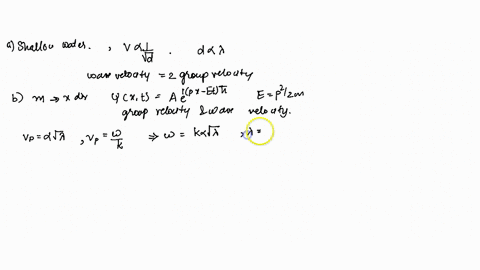 a) Shallow water. , V ∝ 1/√d . d ∝ λ
wave velocity = 2 group velocity
b) m → x dir Ψ(x,t) = A e^{i(px-Et)/ħ} E = p²/2m
group velocity & wave velocity.
Vp = α√λ , Vp = ω/k ⇒ ω = kα√λ , λ =